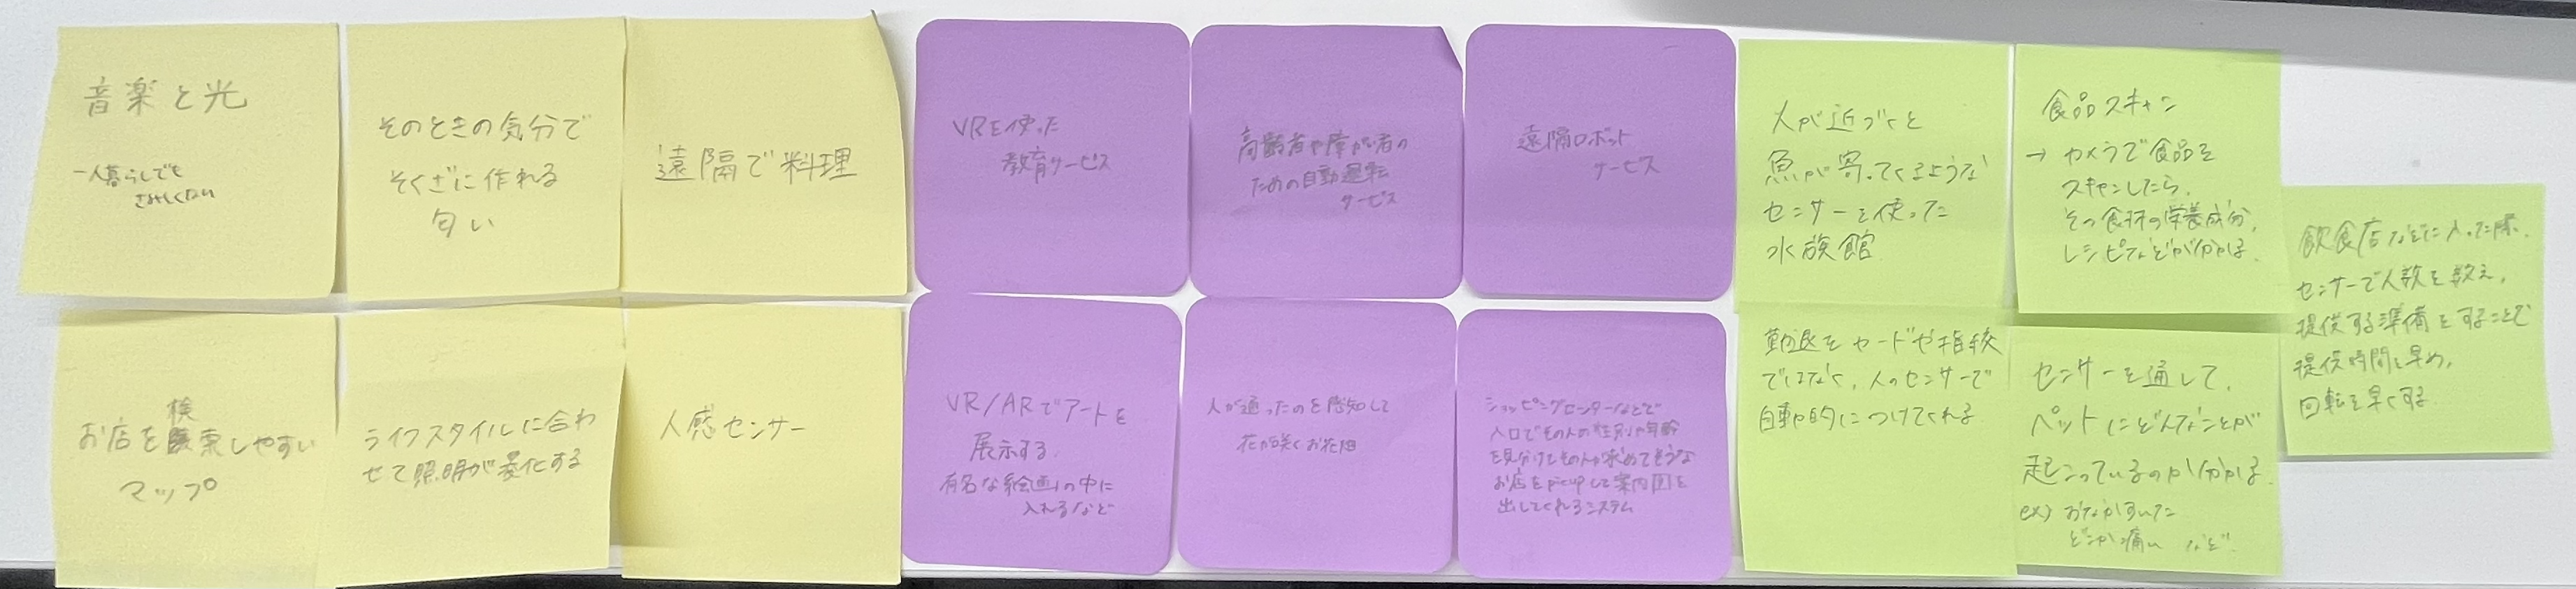 音楽と光
一人暮らしでも
さみしくない
そのときの気分で
そくざに作れる
匂い
遠隔で料理
VRを使った
教育サービス
高齢者や障がい者の
ための自動運転
サービス
遠隔ロボット
サービス
人が近づくと
魚が寄ってくるような
センサーを使った
水族館
食品スキャン
→ カメラで食品を
スキャンしたら、
その食材の栄養成分、
レシピなどが分かる。
飲食店などに入った際、
センサーで人数を数え、
提供する準備をすることで
提供時間を早め、
回転を早くする。
お店を検索しやすい
マップ
ライフスタイルに合わ
せて照明が変化する
人感センサー
VR/ARでアートを
展示する。
有名な絵画の中に
入れるなど
人が通ったのを感知して
花が咲くお花畑
ショッピングセンターなどで
入口でその人の性別や年齢
を見分けその人が求めてそうな
お店をpick upして案内図を
出してくれるシステム
勤退をカードや指紋
ではなく、人のセンサーで
自動的につけてくれる
センサーを通して、
ペットにどんなことが
起こっているのかが分かる。
ex) おなかすいた
どこか痛い など